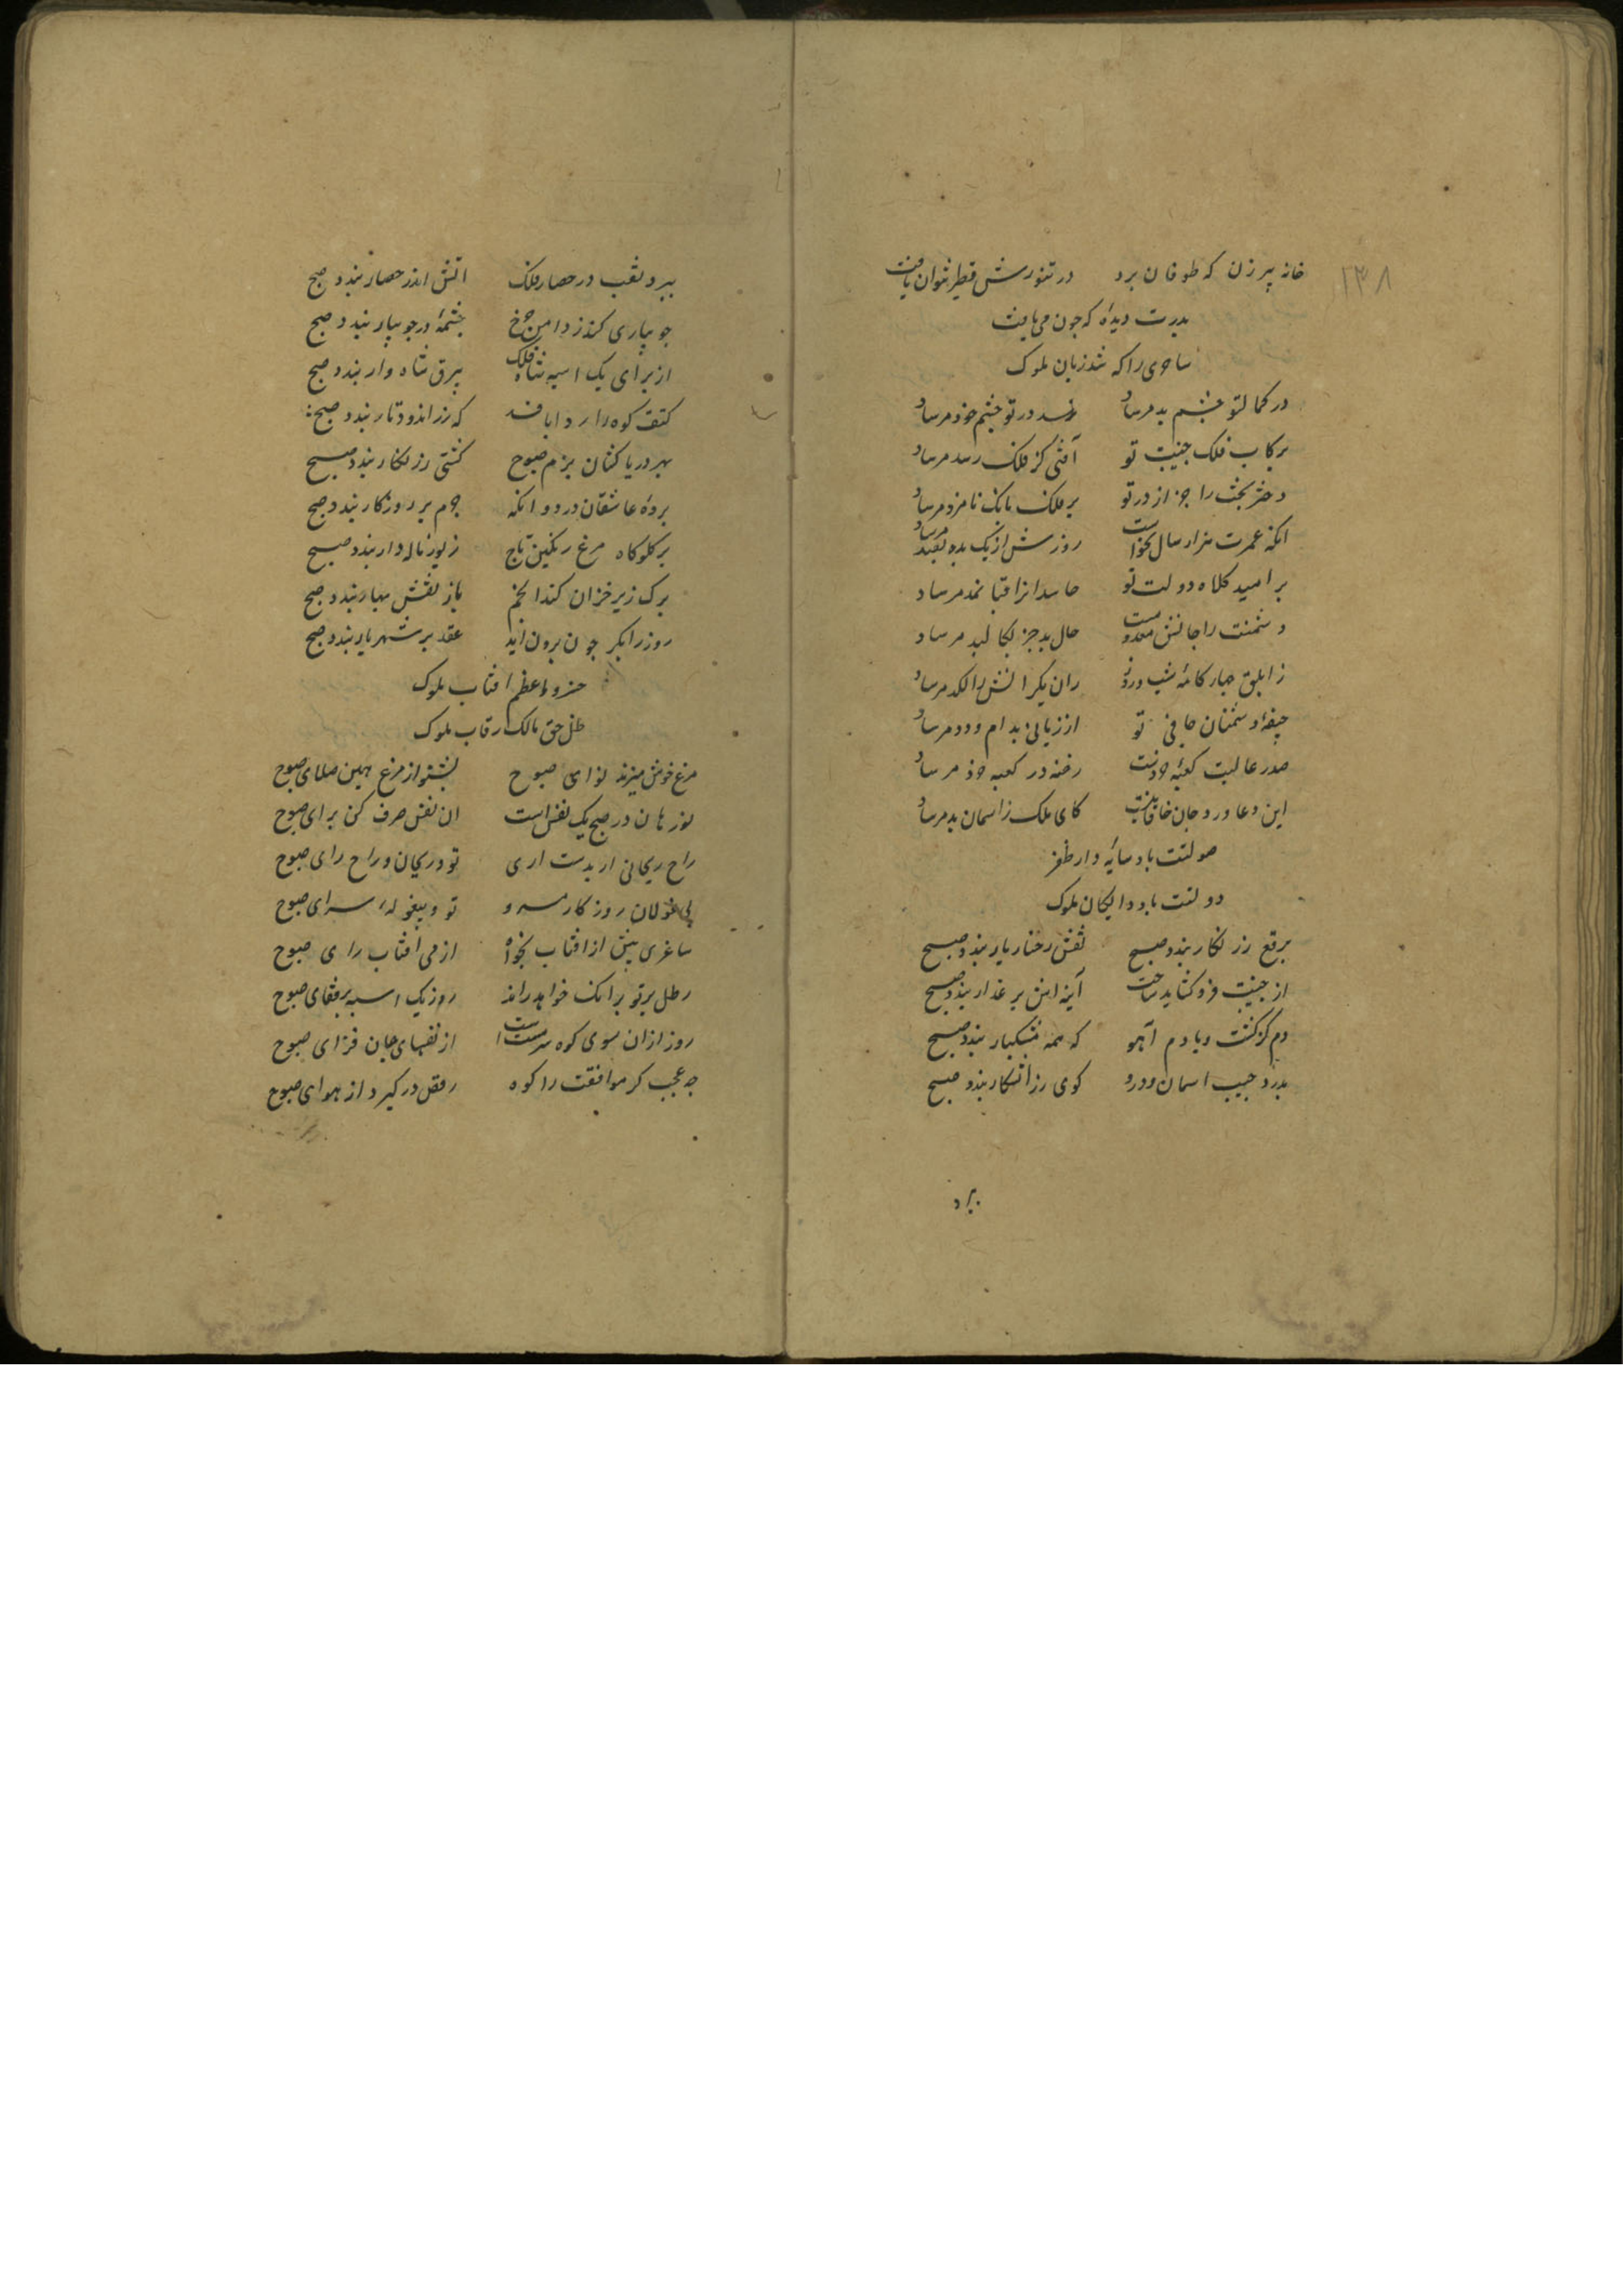 ۱۳۸
خانه پیر زن که طوفان برد در تنورش فطیر نتوان یافت
بدرت دیدهٔ که جون می یافت
ساحری را که شد زبان ملوک
در کمالتو چشم بد مرساد نرسد در تو چشم خود مرساد
برکاب فلک جنیبت تو آفتی کز فلک رسد مرساد
دختر بخت را جز از در تو بر فلک بانک نامزد مرساد
انکه عمرت هزار سال نخواست روزش از یک بده بصد مرساد
بر امید کلاه دولت تو حاسدانرا قبا نمد مرساد
دشمنت را جانش معدو مست حال بد جز بکالبد مرساد
زابلق جبار کامهٔ شب و روز ران یکرانش را لکد مرساد
جیفهٔ دشمنان جافی تو از زبانی بدام و دد مرساد
صدر عالیت کعبهٔ خردست رخنه در کعبه خرد مرساد
این دعا ورد جان خاقانیست کای ملک زاسمان بد مرساد
صولتت باد سایه دار ظفر
دولتت باد دایکان ملوک
برقع زر نکار بندد صبح نقش رخسار یار بندد صبح
از جنیبت فرو کشاید ساخت آینه اش بر عذار بندد صبح
دم کرکست و یا دم آهو که همه مشکبار بندد صبح
بدرد جیب اسمان و درو کوی زر اشکار بندد صبح
ببرد
ببرد نقب در حصار فلک اتش اندر حصار بندد صبح
جویباری کند ز دامن چرخ چشمهٔ در جویبار بندد صبح
از برای یک اسبه شاه فلک بیرق شاه وار بندد صبح
کتف کوه را ردا بافد که زر اندود تار بندد صبح
بهر دریا کشان بزم صبوح کشتی زر نکار بندد صبح
بردهٔ عاشقان درد و انکه جرم بر روزکار بندد صبح
بر کلوکاه مرغ رنکین تاج زیور ناله دار بندد صبح
برک ریز خزان کند انجم باز نقش بهار بندد صبح
روز را بکر جون برون اید عقد بر شهریار بندد صبح
خسرو اعظم افتاب ملوک
ظل حق مالک رقاب ملوک
مرغ خوش میزند نوای صبوح بشنو از مرغ بهین صلای صبوح
نورهان در صبح یک نفس است ان نفس صرف کن برای صبوح
راح ریحانی ار بدست اری تو و ریحان و راح رای صبوح
بی غولان روزکار مرو تو و بیغولهٔ سرای صبوح
ساغری بیش از افتاب بخواه از می افتاب رای صبوح
رطل برتو بر انک خواهد راند روز یک اسبه بر قفای صبوح
روز ازان سوی کوه سرمست است از نفسهای جان فزای صبوح
جه عجب کر موافقت را کوه رقص در کیرد از هوای صبوح